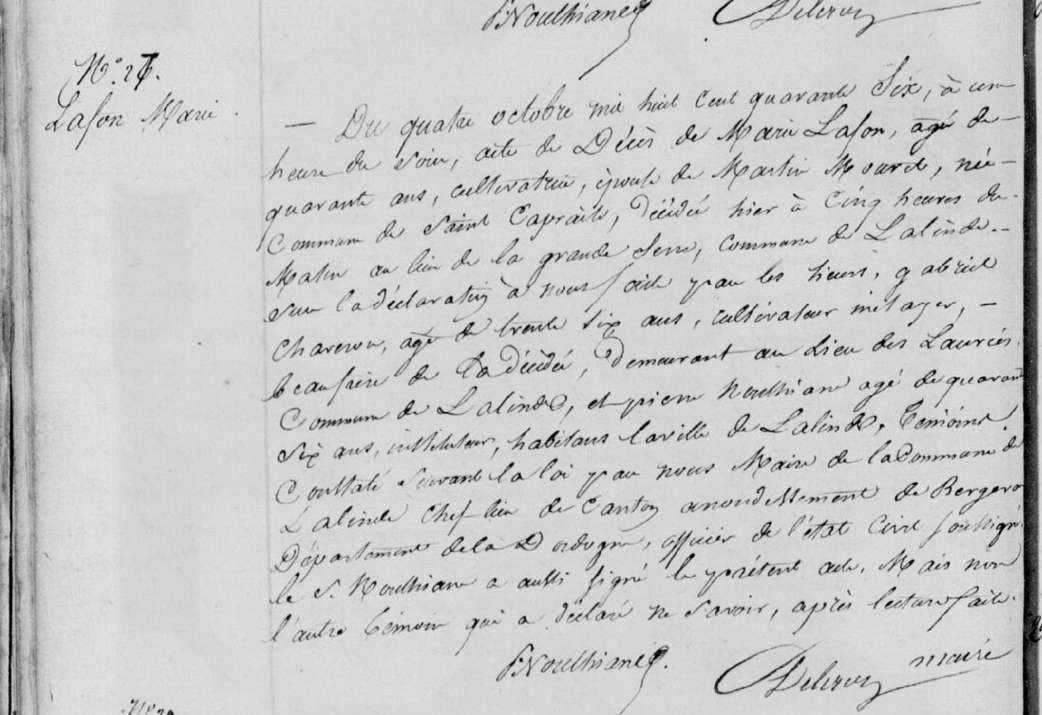 PNouthiane
Delcroy
N.° 27.
Lafon Marie
— Du quatre octobre mil huit cent quarante Six, à une
heure du Soir, acte de Décès de Marie Lafon, agé de —
quarante ans, cultivatrice, épouse de Martin Mourel, née —
Commune de Saint Caprais, décédée hier à Cinq heures du
Matin au lieu de la grande Serre, commune de Lalinde. —
Sur la déclaration à nous faite par les sieurs, gabriel
Chareron, agé de trente six ans, cultivateur métayer, —
beaufrère de la décédée, demeurant au Lieu des Lauriés
Commune de Lalinde, et pierre Nouthiane agé de quarante
Six ans, instituteur, habitans la ville de Lalinde, témoins.
Constaté Suivant la loi par nous Maire de la Commune de
Lalinde Chef lieu de Canton arrondissement de Bergerac
Département de la Dordogne, officier de l'état Civil soussigné
le S. Nouthiane a aussi signé le présent acte, Mais non
l'autre témoin qui a déclaré ne Savoir, après lecture faite.
PNouthiane.
Delcroy maire